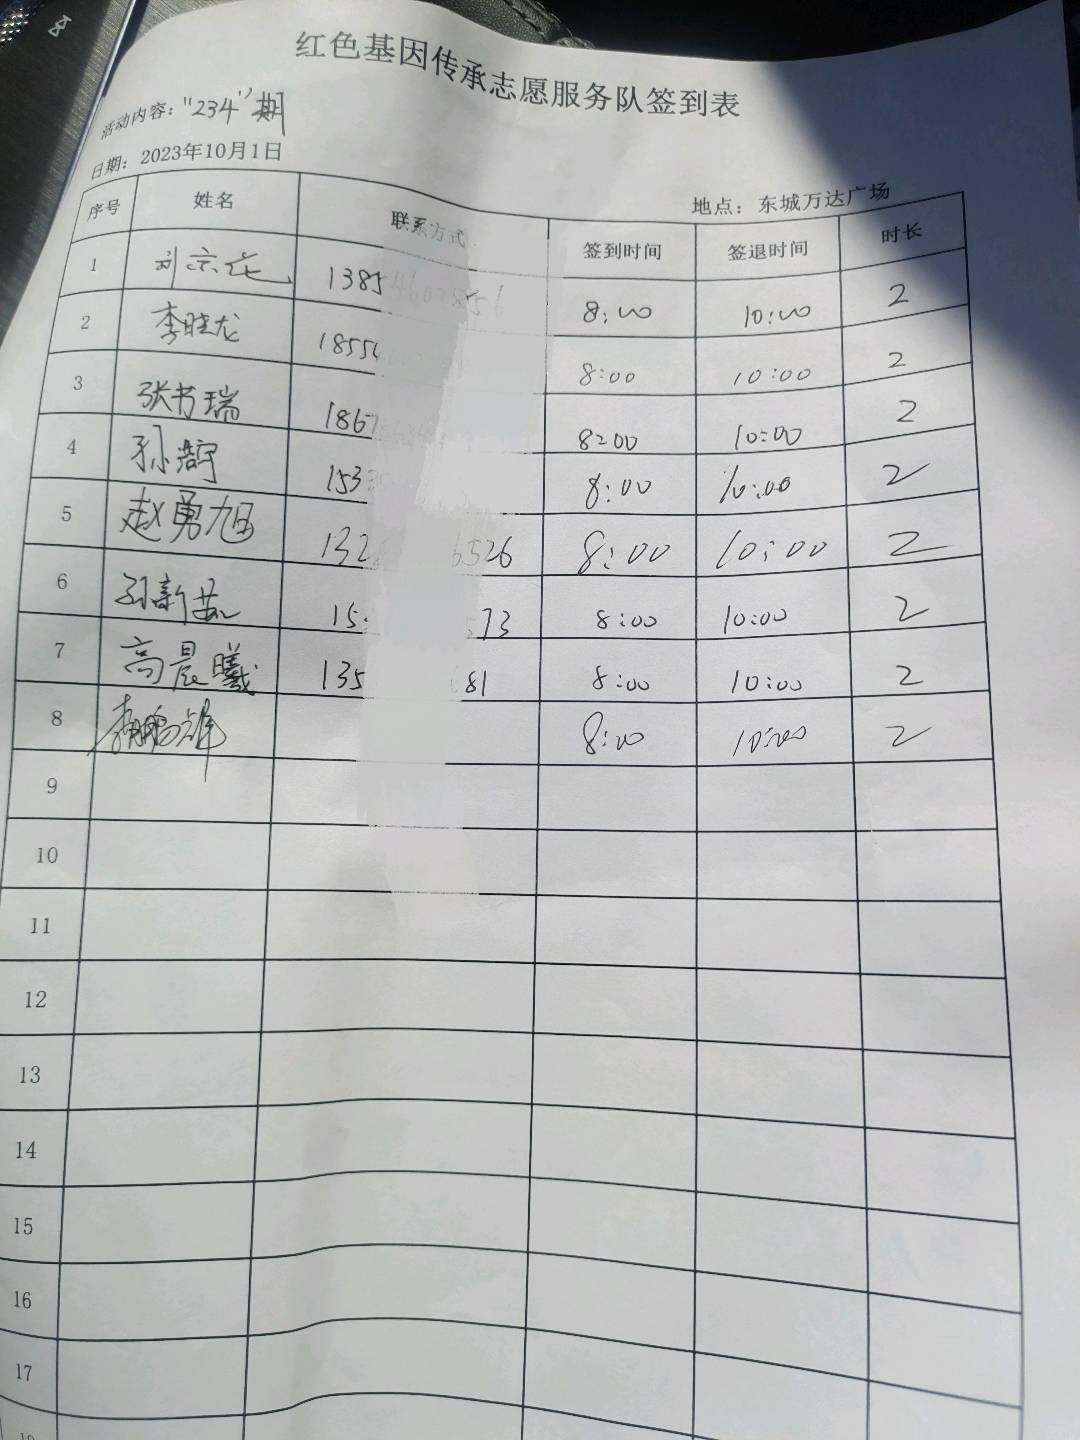 红色基因传承志愿服务队签到表
活动内容：“234”期
日期：2023年10月1日
地点：东城万达广场
序号 姓名 联系方式 签到时间 签退时间 时长
1 刘京花 1385 8:00 10:00 2
2 李晓龙 1855 8:00 10:00 2
3 张书瑞 1867 8:00 10:00 2
4 孙 153 8:00 10:00 2
5 赵勇旭 132 6526 8:00 10:00 2
6 新 15 73 8:00 10:00 2
7 高晨曦 135 81 8:00 10:00 2
8 李鹏 8:00 10:00 2
9
10
11
12
13
14
15
16
17